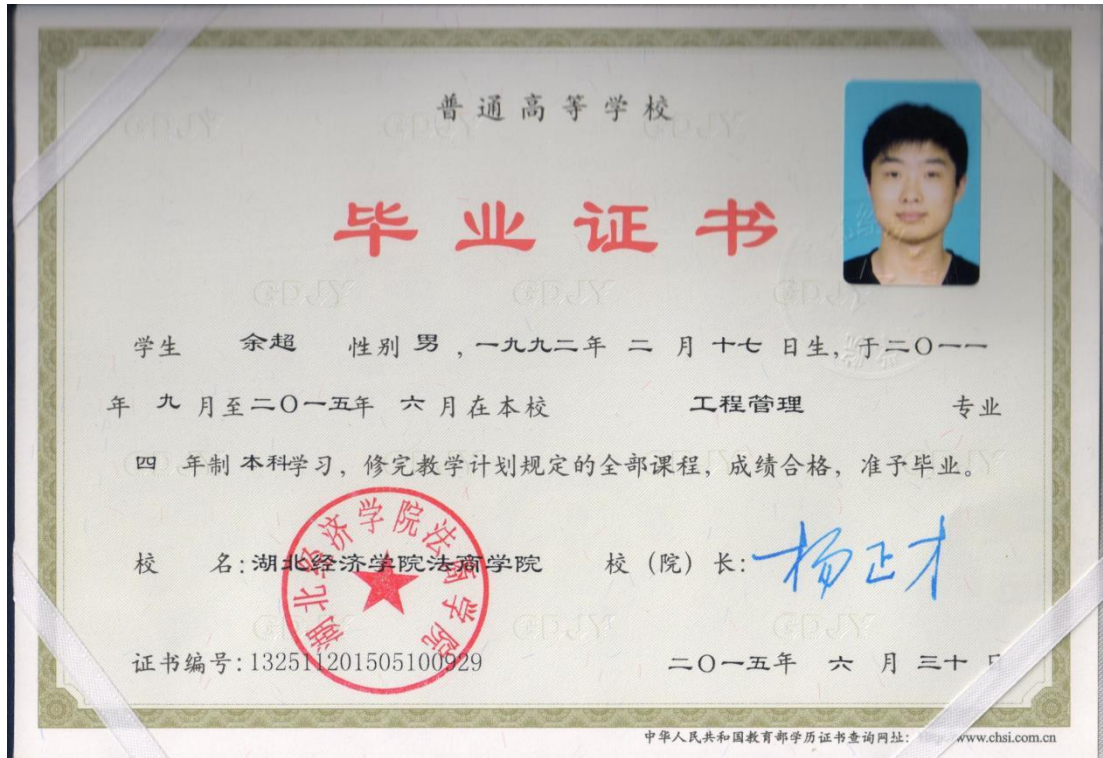 普通高等学校
毕业证书
学生 余超 性别 男，一九九二年 二 月 十七 日生，于二〇一一
年 九 月至二〇一五年 六 月在本校 工程管理 专业
四 年制 本科学习，修完教学计划规定的全部课程，成绩合格，准予毕业。
校 名：湖北经济学院法商学院 校（院）长：杨正才
湖北经济学院法商学院
证书编号：132511201505100929 二〇一五年 六 月 三十 日
中华人民共和国教育部学历证书查询网址： www.chsi.com.cn
GDJY